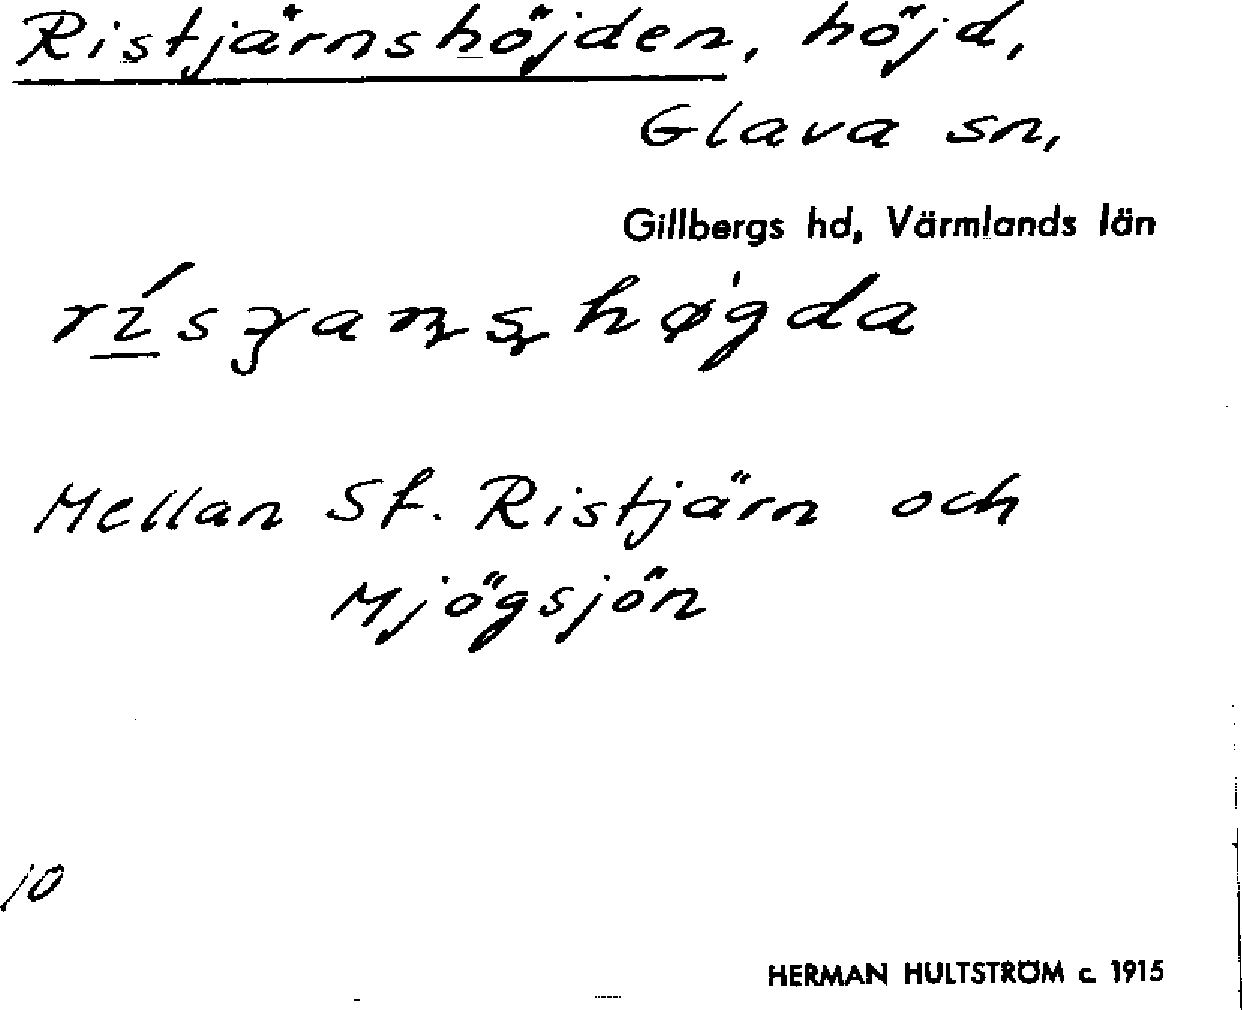 Ristjärnshöjden, höjd,
Glava sn,
Gillbergs hd, Värmlands län
Mellan St. Ristjärn och
Mjögsjön
10
HERMAN HULTSTRÖM c. 1915